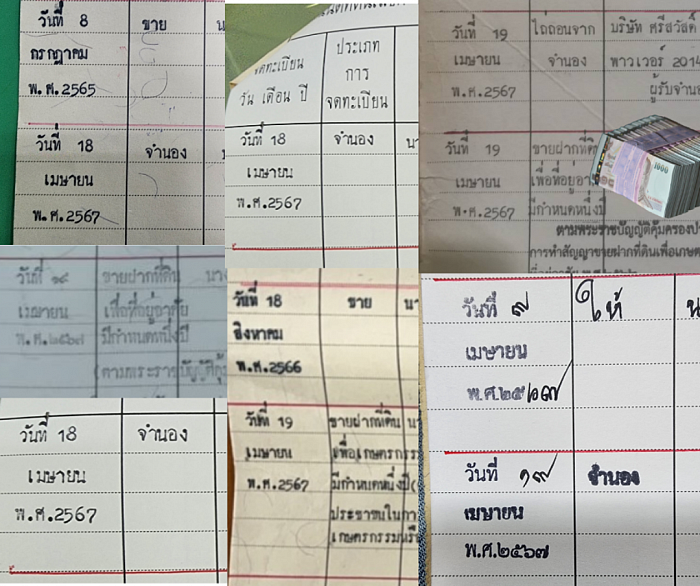 วันที่ 8 ขาย
กรกฎาคม
พ.ศ.2565
วันที่ 18 จำนอง
เมษายน
พ.ศ.2567
จดทะเบียน ประเภท
วัน เดือน ปี การ
จดทะเบียน
วันที่ 18 จำนอง
เมษายน
พ.ศ.2567
วันที่ 19 ไถ่ถอนจาก บริษัท ศรีสวัสดิ์
เมษายน จำนอง พาวเวอร์ 2014
พ.ศ.2567 ผู้รับจำนอง
วันที่ 19 ขายฝากที่ดิน
เมษายน เพื่อที่อยู่อา
พ.ศ.2567 มีกำหนดหนึ่งปี
ตามพระราชบัญญัติคุ้มครองป
การทำสัญญาขายฝากที่ดินเพื่อเกษต
1000
วันที่ ๑๙ ขายฝากที่ดิน นาง
เมษายน เพื่อที่อยู่อาศัย
พ.ศ.๒๕๖๗ มีกำหนดหนึ่งปี
(ตามพระราชบัญญัติคุ้
วันที่ 18 ขาย นา
สิงหาคม
พ.ศ.2566
วันที่ 19 ขายฝากที่ดิน นา
เมษายน เพื่อเกษตรกรร
พ.ศ.2567 มีกำหนดหนึ่งปี(
ประชาชนในกา
เกษตรกรรมหรื
วันที่ ๗ ให้ น
เมษายน
พ.ศ.๒๕๖๗
วันที่ ๑๙ จำนอง
เมษายน
พ.ศ.๒๕๖๗
วันที่ 18 จำนอง
เมษายน
พ.ศ.2567